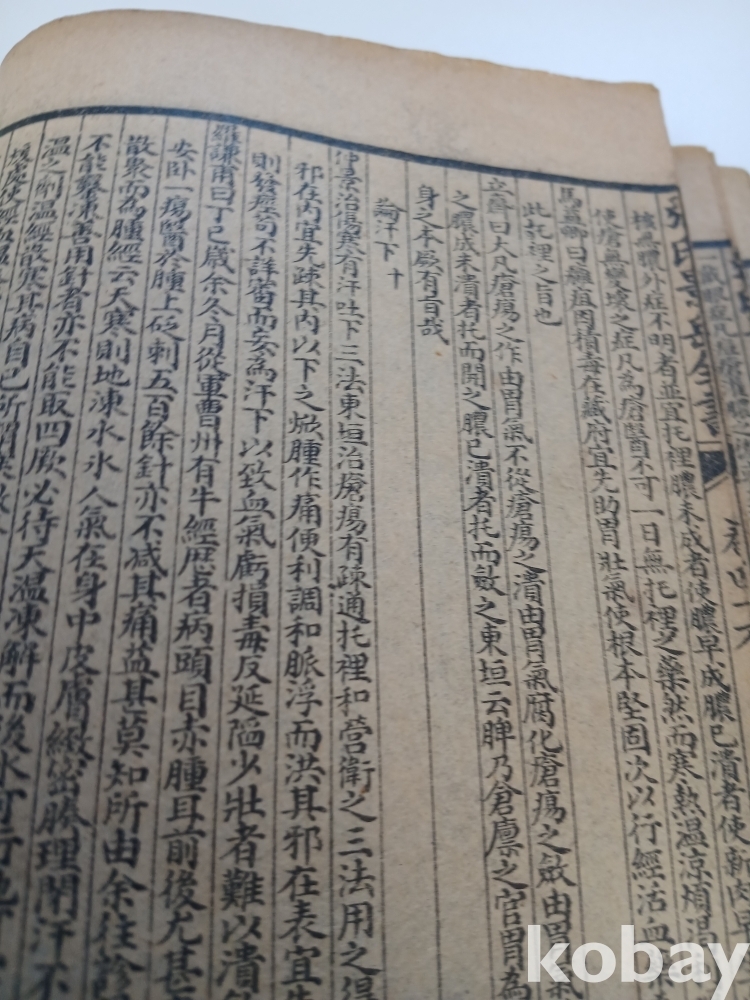 張氏景岳全書 卷四十六
核無膿外症不明者並宜托裡膿未成者使膿早成膿已潰者使新肉早
使瘡無變壞之症凡為瘡醫不可一日無托裡之藥然而寒熱溫涼煩渴
馬益卿曰癰疽因積毒在藏府宜先助胃壯氣使根本堅固次以行經活血
此托裡之旨也
立齋曰大凡瘡瘍之作由胃氣不從瘡瘍之潰由胃氣腐化瘡瘍之斂由胃氣
之膿成未潰者托而開之膿已潰者托而斂之東垣云脾乃倉廩之官胃為
身之本厥有旨哉
論汗下 十
仲景治傷寒有汗吐下三法東垣治瘡瘍有疏通托裡和營衛之三法用之得
邪在內宜先疎其內以下之焮腫作痛便利調和脈浮而洪其邪在表宜先
則發痙苟不詳審而妄為汗下以致血氣虧損毒反延陷少壯者難以潰
羅謙甫曰丁巳歲余冬月從軍曹州有牛經歷者病頭目赤腫耳前後尤甚
安臥一瘍醫於腫上砭刺五百餘針亦不减其痛益甚莫知所由余往診
散聚而為腫經云天寒則地凍水氷人氣在身中皮膚緻密腠理閉汗不
不能鑿氷善用針者亦不能取四厥必待天溫凍解而後水可行地
溫之劑溫經散寒其病自已所謂
kobay